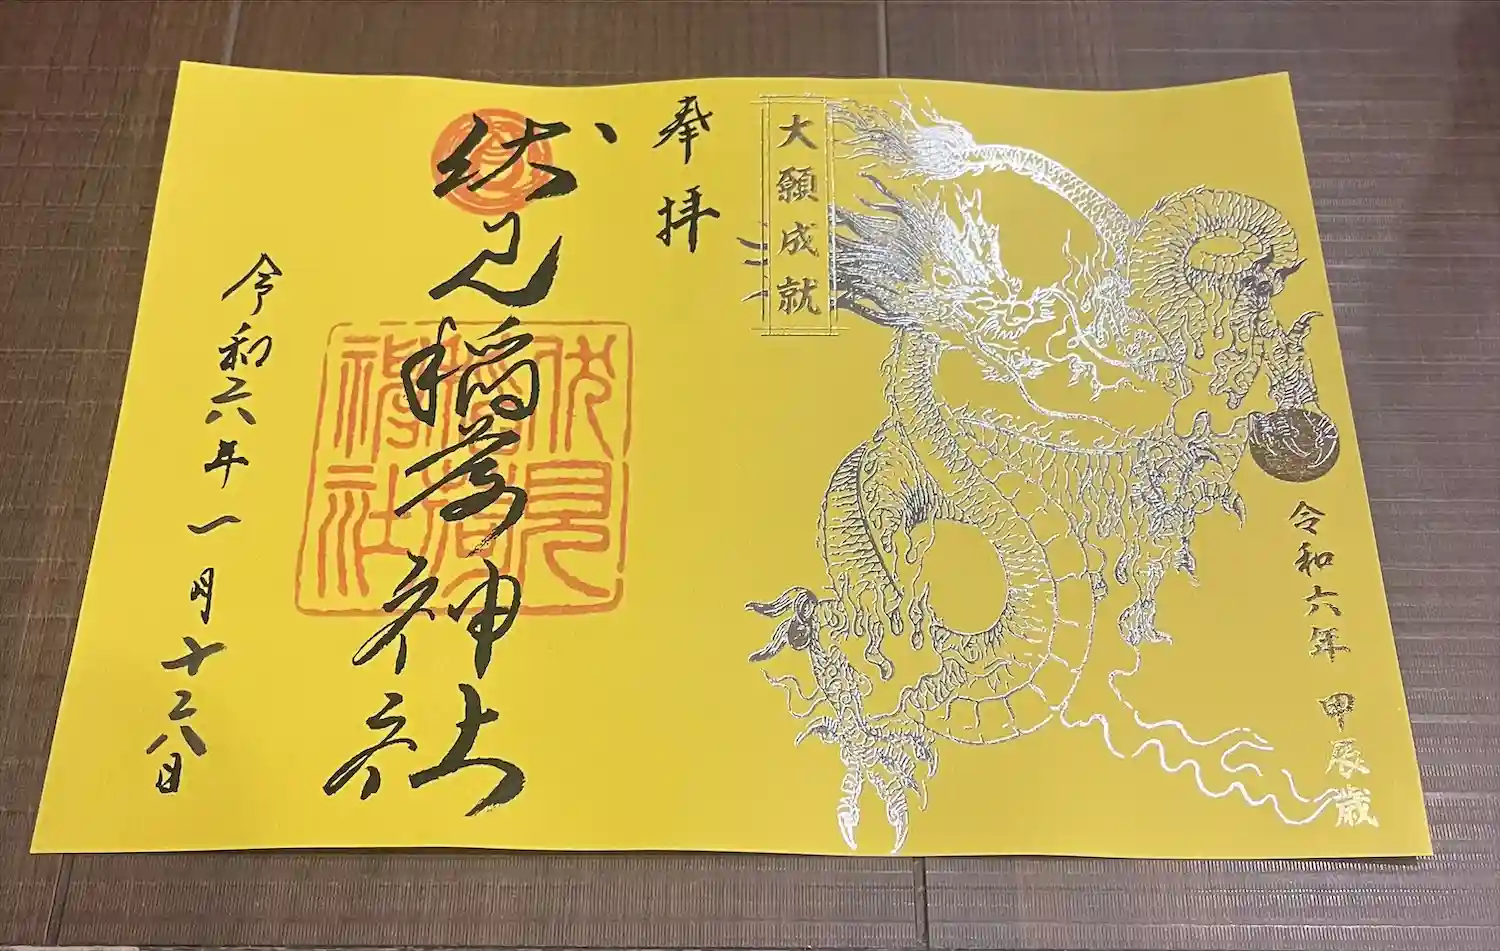 大願成就
令和六年 甲辰歳
奉拝
伏見稲荷神社
伏見
稲荷
神社
令和六年一月十六日